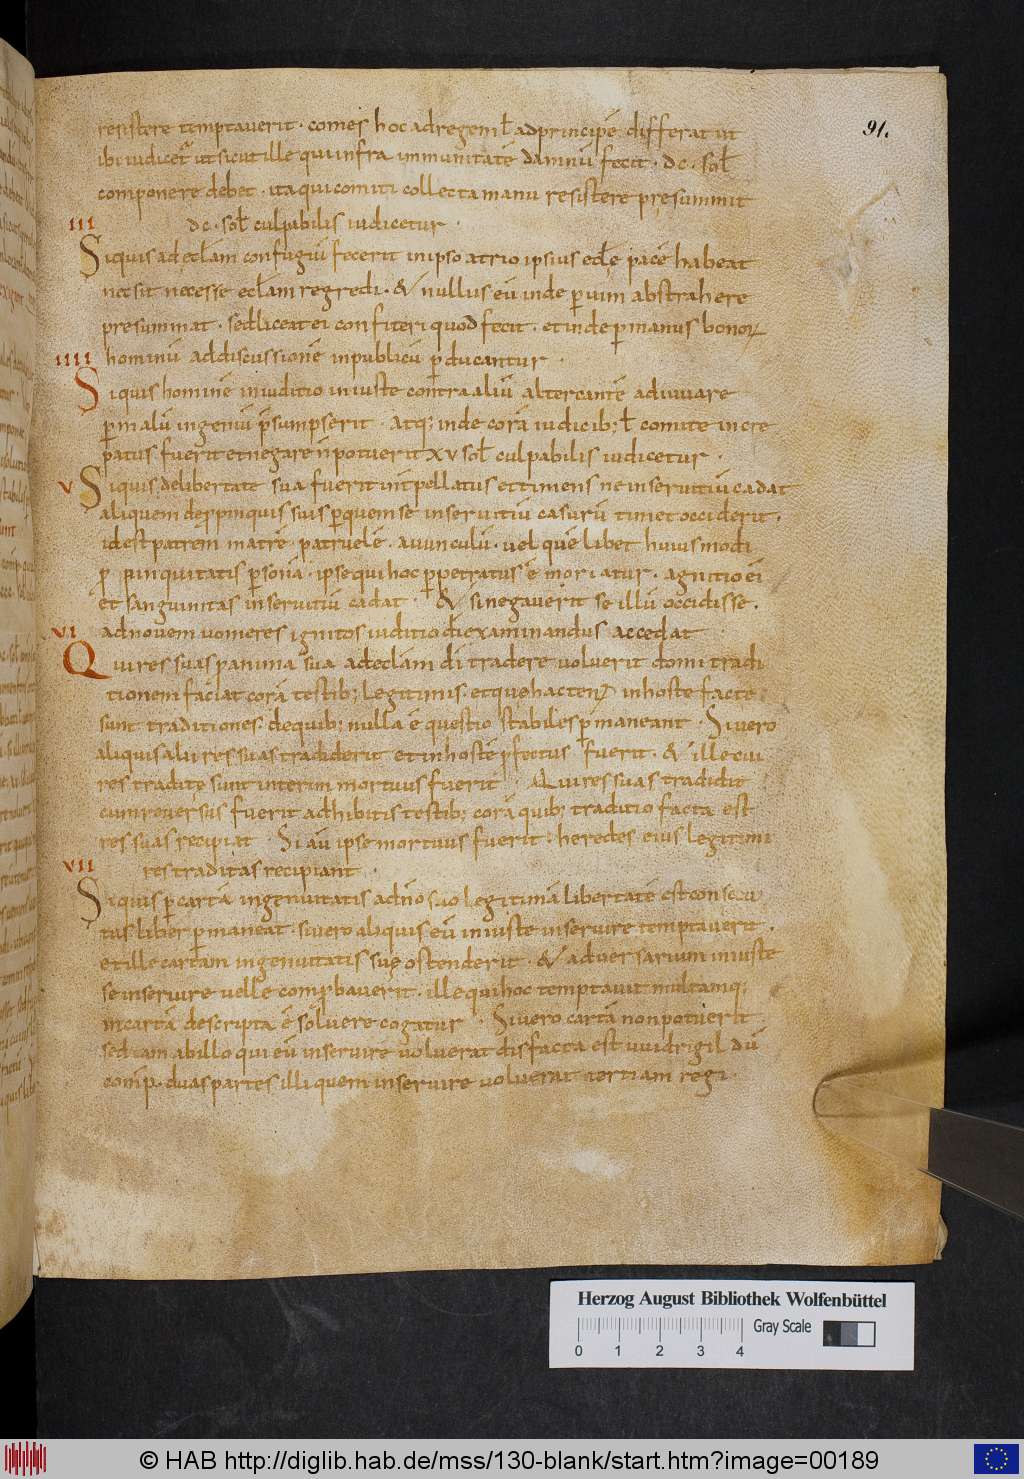 91.
resistere temptaverit · comes hoc ad regem ł ad principē differat ut
ibi iudicet᷑ ut sicut ille qui infra immunitatē damnū fecit · dc · soł
componere debet · ita qui comiti collecta manu resistere presummit
III dc · soł culpabilis iudicetur ·
Siquis ad ecłam confugiū fecerit in ipso atrio ipsius ecłe pacē habeat
nec sit necesse ecłam regredi · & nullus eū inde p̄ vim abstrahere
presummat · sed liceat ei confiteri quod fecit · et inde p̄ manus bonoꝝ
IIII hominū ad discussionē in publicū p̄ducantur ·
Siquis hominē in iuditio iniuste contra aliū altercantē adiuvare
p̄ malū ingeniū p̄sumpserit · atq; inde corā iudicib; ł comite incre
patus fuerit et negare n̄ potuerit xv soł culpabilis iudicetur ·
V Siquis de libertate sua fuerit int̄pellatus et timens ne in servitiū cadat
aliquem de p̄pinquis suis p̄ quem se in servitiū casurū timet occiderit ·
id est patrem matrē · patruelē · avunculū · vel quē libet huius modi
p̄pinquitatis p̄sonā · ipse qui hoc p̄petratus ē moriatur · agnitio ei
et sanguinitas in servitiū cadat · & si negaverit se illū occidisse ·
VI ad novem vomeres ignitos iuditio dī examinandus accedat
Qui res suas p anima sua ad ecłam dī tradere voluerit domi tradi
tionem faciat corā testib; legitimis et que hacten᷒ in hoste facte
sunt traditiones de quib; nulla ē questio stabiles p̄maneant · Si vero
aliquis alii res suas tradiderit et in hostē pfectus fuerit · & ille cui
res tradite sunt interim mortuus fuerit · Qui res suas tradidit
cum reversus fuerit adhibitis testib; corā quib; traditio facta est
res suas recipiat · Si aū ipse mortuus fuerit · heredes eius legitimi
VII res traditas recipiant ·
Siquis p̄ cartā ingenuitatis a dn̄o suo legitimā libertatē est consecu
tus liber p̄maneat · si vero aliquis eū iniuste inservire temptaverit ·
et ille cartam ingenuitatis sue ostenderit · & adversarium iniuste
se inservire velle comp̄baverit · ille qui hoc temptavit multamq;
in cartā descripta ē solvere cogatur · Si vero cartā non potuerit
sed iam ab illo qui eū inservire voluerat disfacta est uuidrigild ū
comp̄ · duas partes illi quem inservire voluerat tertiam regi ·
Herzog August Bibliothek Wolfenbüttel
Gray Scale
0 1 2 3 4
© HAB http://diglib.hab.de/mss/130-blank/start.htm?image=00189